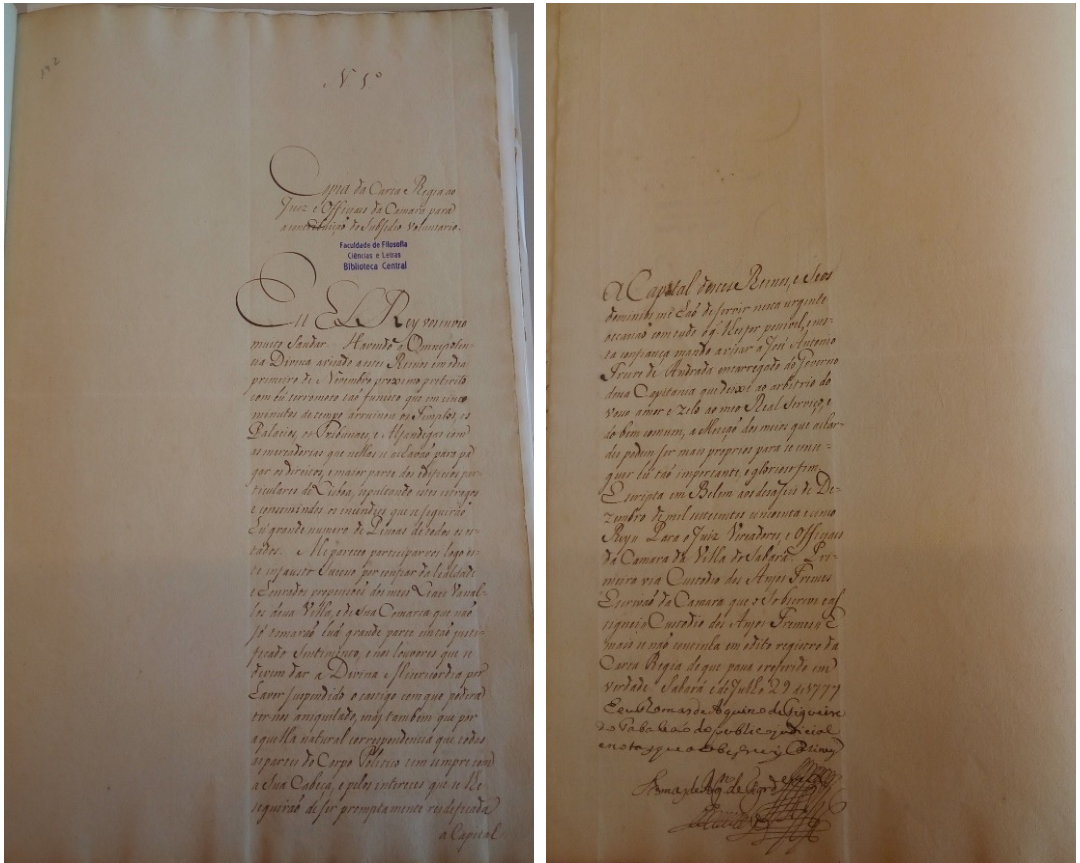 142
N 1º
Copia da Carta Regia ao
Juiz e Officiaes da Camara para
a contribuiçaõ do Subsidio voluntario.
Faculdade de Filosofia
Ciências e Letras
Biblioteca Central
Eu EL Rey vos invio
muito Saudar. Havendo a Omnipoten-
cia Divina avizado a estes Reinos em o dia
primeiro de Novembro proximo preterito
com hu terremoto taõ funesto que em cinco
minutos de tempo arruinou os Templos, os
Palacios, os Tribunaes, e Alfandegas com
as mercadorias que nellas se achavaõ para pa-
gar os direitos, e maior parte dos edificios par-
ticulares de Lisboa, sepultando estes estragos
e consumindo os incendios que se seguiraõ
hu grande numero de Pessoas de todos os es-
tados. Me pareceo participarvos logo es-
te infausto Sucesso por confiar da lealdade
e honrados propensoẽs dos meos Leaes Vasal-
los dessa Villa, e de sua Comarca que naõ
só tomaraõ huã grande parte em taõ justi-
ficado Sentimento, e nos louvores que se
devem dar a Divina Misericordia por
haver suspendido o castigo com que podera
ternos aniquilado, mas tambem que por
aquella natural correspondencia que todas
as partes do Corpo Politico tem sempre com
a Sua Cabeça, e pelos interesses que se lhe
seguiraõ de ser promptamente reedificada
a Capital
A Capital destes Reinos, e Seos
dominios me haõ de servir nesta urgente
occasiaõ com tudo o q' lhes for possivel, e nes-
ta confiança mando avizar a José Antonio
Freire de Andrada encarregado do Governo
dessa Capitania que deixe ao arbitrio do
vosso amor e zelo ao meo Real Serviço, e
do bem comum, a Eleiçaõ dos meios que achar-
des podem ser mais proprios para se conse-
guir hũ taõ importante, e glorioso fim.
Escripta em Belem aos dezaseis de De-
zembro de mil setecentos cincoenta e cinco
Rey // Para o Juiz Vereadores, e Officiaes
da Camara da Villa do Sabará Pri-
meira via Custodio dos Anjos Fremes
Escrivaõ da Camara que o Sobscrevi e as-
signei // Custodio dos Anjos Fremes // E
mais se naõ continha em o dito registro da
Carta Regia de que passa o referido em
verdade Sabará e de Julho 29 de 1777
E eu Thomas de Aquino de
Tabaliaõ do publico judicial
e notas que o Sobescrevi e asiney